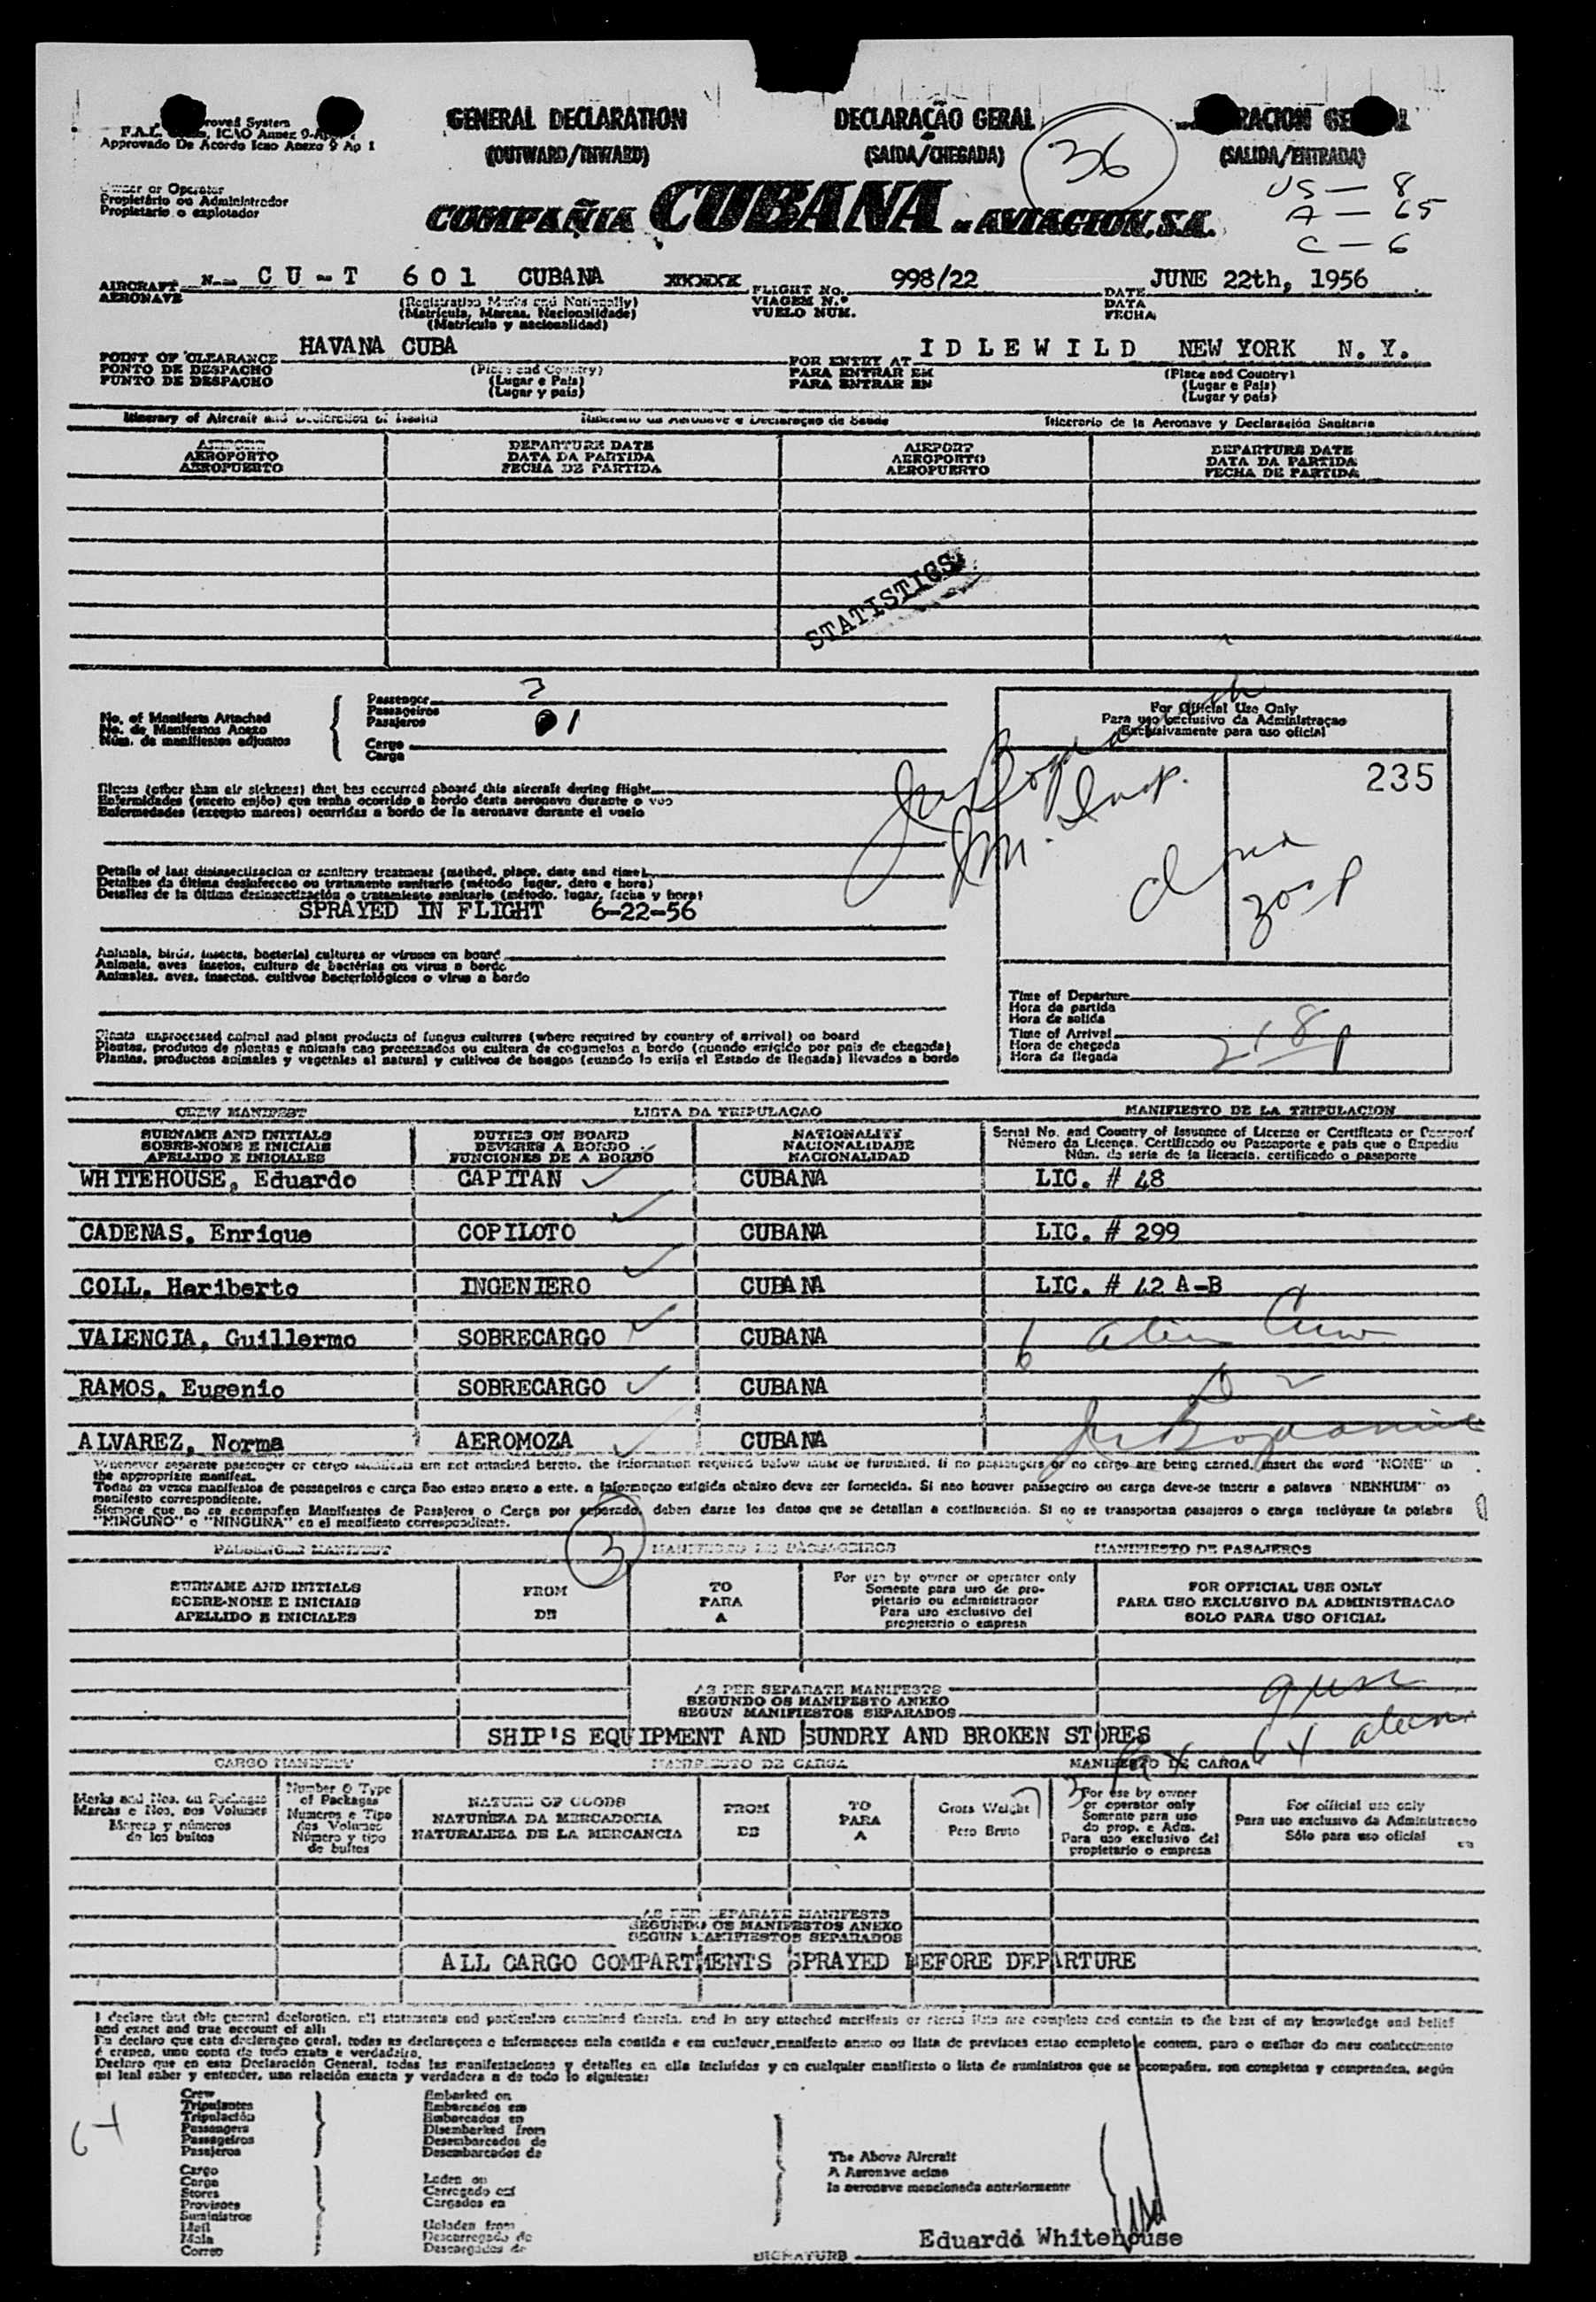 GENERAL DECLARATION
(OUTWARD/INWARD)
DECLARAÇÃO GERAL
(SAIDA/CHEGADA)
(SALIDA/ENTRADA)
36
Approvado De Acordo Icao Anexo 9 Ap 1
US — 8
A — 65
C — 6
Owner or Operator
Propietário ou Administrador
Propietario o explotador
COMPAÑIA CUBANA de AVIACION, S.A.
AIRCRAFT N. CU-T 601 CUBANA XXXXX FLIGHT NO. 998/22 DATE JUNE 22th, 1956
AERONAVE
(Registration Marks and Nationally)
(Matrícula, Marcas, Nacionalidade)
(Matrícula y nacionalidad)
VIAGEM N.º
VUELO NUM.
DATA
FECHA
POINT OF CLEARANCE HAVANA CUBA FOR ENTRY AT IDLEWILD NEW YORK N. Y.
PONTO DE DESPACHO
PUNTO DE DESPACHO
(Place and Country)
(Lugar e País)
(Lugar y país)
PARA ENTRAR EM
PARA ENTRAR EN
(Place and Country)
(Lugar e País)
(Lugar y país)
Itinerary of Aircraft and Declaration of Health
Itinerario da Aeronave e Declaraçao de Saude
Itinerario de la Aeronave y Declaración Sanitaria
AIRPORT
AEROPORTO
AEROPUERTO
DEPARTURE DATE
DATA DA PARTIDA
FECHA DE PARTIDA
AIRPORT
AEROPORTO
AEROPUERTO
DEPARTURE DATE
DATA DA PARTIDA
FECHA DE PARTIDA
STATISTICS
No. of Manifests Attached
No. de Manifestos Anexo
Núm. de manifiestos adjuntos
Passenger 3
Passageiros
Pasajeros 1
Cargo
Carga
For Official Use Only
Para uso exclusivo da Administraçao
Exclusivamente para uso oficial
235
Illness (other than air sickness) that has occurred aboard this aircraft during flight
Enfermidades (exceto enjôo) que tenha ocorrido a bordo desta aeronave durante o voo
Enfermedades (excepto mareos) ocurridas a bordo de la aeronave durante el vuelo
Details of last disinsectization or sanitary treatment (method, place, date and time)
Detalhes da última desinfeccao ou tratamento sanitario (método lugar, data e hora)
Detalles de la última desinsectización o tratamiento sanitario (método, lugar, fecha y hora)
SPRAYED IN FLIGHT 6-22-56
Animals, birds, insects, bacterial cultures or viruses on board
Animais, aves insetos, cultura de bactérias ou virus a bordo
Animales, aves, insectos, cultivos bacteriológicos o virus a bordo
Time of Departure
Hora da partida
Hora de salida
Time of Arrival 218 P
Hora de chegada
Hora de llegada
Plants unprocessed animal and plant products of fungus cultures (where required by country of arrival) on board
Plantas, produtos de plantas e animais nao processados ou cultura de cogumelos a bordo (quando exigido por pais de chegada)
Plantas, productos animales y vegetales al natural y cultivos de hongos (cuando lo exija el Estado de llegada) llevados a bordo
CREW MANIFEST
LISTA DA TRIPULACAO
MANIFIESTO DE LA TRIPULACION
SURNAME AND INITIALS
SOBRE-NOME E INICIAIS
APELLIDO E INICIALES
DUTIES ON BOARD
DEVERES A BORDO
FUNCIONES DE A BORDO
NATIONALITY
NACIONALIDADE
NACIONALIDAD
Serial No. and Country of Issuance of License or Certificate or Passport
Número da Licença, Certificado ou Passaporte e pais que o Expediu
Núm. de serie de la licencia, certificado o pasaporte
WHITEHOUSE, Eduardo CAPITAN CUBANA LIC. # 48
CADENAS, Enrique COPILOTO CUBANA LIC. # 299
COLL, Heriberto INGENIERO CUBANA LIC. # 42 A-B
VALENCIA, Guillermo SOBRECARGO CUBANA 6 alien Crew
RAMOS, Eugenio SOBRECARGO CUBANA
ALVAREZ, Norma AEROMOZA CUBANA
Whenever separate passenger or cargo manifests are not attached hereto, the information required below must be furnished. If no passengers or no cargo are being carried, insert the word "NONE" in
the appropriate manifest.
Todas as vezes manifestos de passageiros e carga nao estao anexo a este, a informaçao exigida abaixo deve ser fornecida. Si nao houver passageiro ou carga deve-se inserir a palavra "NENHUM" no
manifesto correspondiente.
Siempre que no se acompañen Manifiestos de Pasajeros o Carga por separado, deben darse los datos que se detallan a continuación. Si no se transportan pasajeros o carga inclúyase la palabra
"NINGUNO" o "NINGUNA" en el manifiesto correspondiente.
3
PASSENGER MANIFEST
MANIFESTO DE PASSAGEIROS
MANIFIESTO DE PASAJEROS
SURNAME AND INITIALS
SOBRE-NOME E INICIAIS
APELLIDO E INICIALES
FROM
DE
TO
PARA
A
For use by owner or operator only
Somente para uso de pro-
pietario ou administrador
Para uso exclusivo del
propietario o empresa
FOR OFFICIAL USE ONLY
PARA USO EXCLUSIVO DA ADMINISTRACAO
SOLO PARA USO OFICIAL
AS PER SEPARATE MANIFESTS
SEGUNDO OS MANIFESTO ANEXO
SEGUN MANIFIESTOS SEPARADOS
SHIP'S EQUIPMENT AND SUNDRY AND BROKEN STORES
CARGO MANIFEST
MANIFESTO DE CARGA
MANIFIESTO DE CARGA
Marks and Nos. on Packages
Marcas e Nos. nos Volumes
Marcas y números
de los bultos
Number & Type
of Packages
Numeros e Tipo
dos Volumes
Número y tipo
de bultos
NATURE OF GOODS
NATUREZA DA MERCADORIA
NATURALEZA DE LA MERCANCIA
FROM
DE
TO
PARA
A
Gross Weight
Peso Bruto
For use by owner
or operator only
Somente para uso
do prop. e Adm.
Para uso exclusivo del
propietario o empresa
For official use only
Para uso exclusivo da Administracao
Sólo para uso oficial
AS PER SEPARATE MANIFESTS
SEGUNDO OS MANIFESTOS ANEXO
SEGUN MANIFIESTOS SEPARADOS
ALL CARGO COMPARTMENTS SPRAYED BEFORE DEPARTURE
I declare that this general declaration, all statements and particulars contained therein, and in any attached manifests or stores lists are complete and contain to the best of my knowledge and belief
and exact and true account of all:
Eu declaro que esta declaraçao geral, todas as declaraçoes e informacoes nela contida e em cualquer manifesto anexo ou lista de previsoes estao completo e contem, para o melhor do meu conhecimento
é crença, uma conta de tudo exata e verdadeira.
Declaro que en esta Declaración General, todas las manifestaciones y detalles en ella incluidos y en cualquier manifiesto o lista de suministros que se acompañen, son completos y comprenden, según
mi leal saber y entender, una relación exacta y verdadera a de todo lo siguiente:
Crew
Tripulantes
Tripulación
Passengers
Passageiros
Pasajeros
Embarked on
Embarcados em
Embarcados en
Disembarked from
Desembarcados de
Desembarcados de
Cargo
Carga
Stores
Provisoes
Suministros
Mail
Mala
Correo
Laden on
Carregado em
Cargados en
Unladen from
Descarregado de
Descargados de
The Above Aircraft
A Aeronave acima
la aeronave mencionada anteriormente
SIGNATURE Eduardo Whitehouse